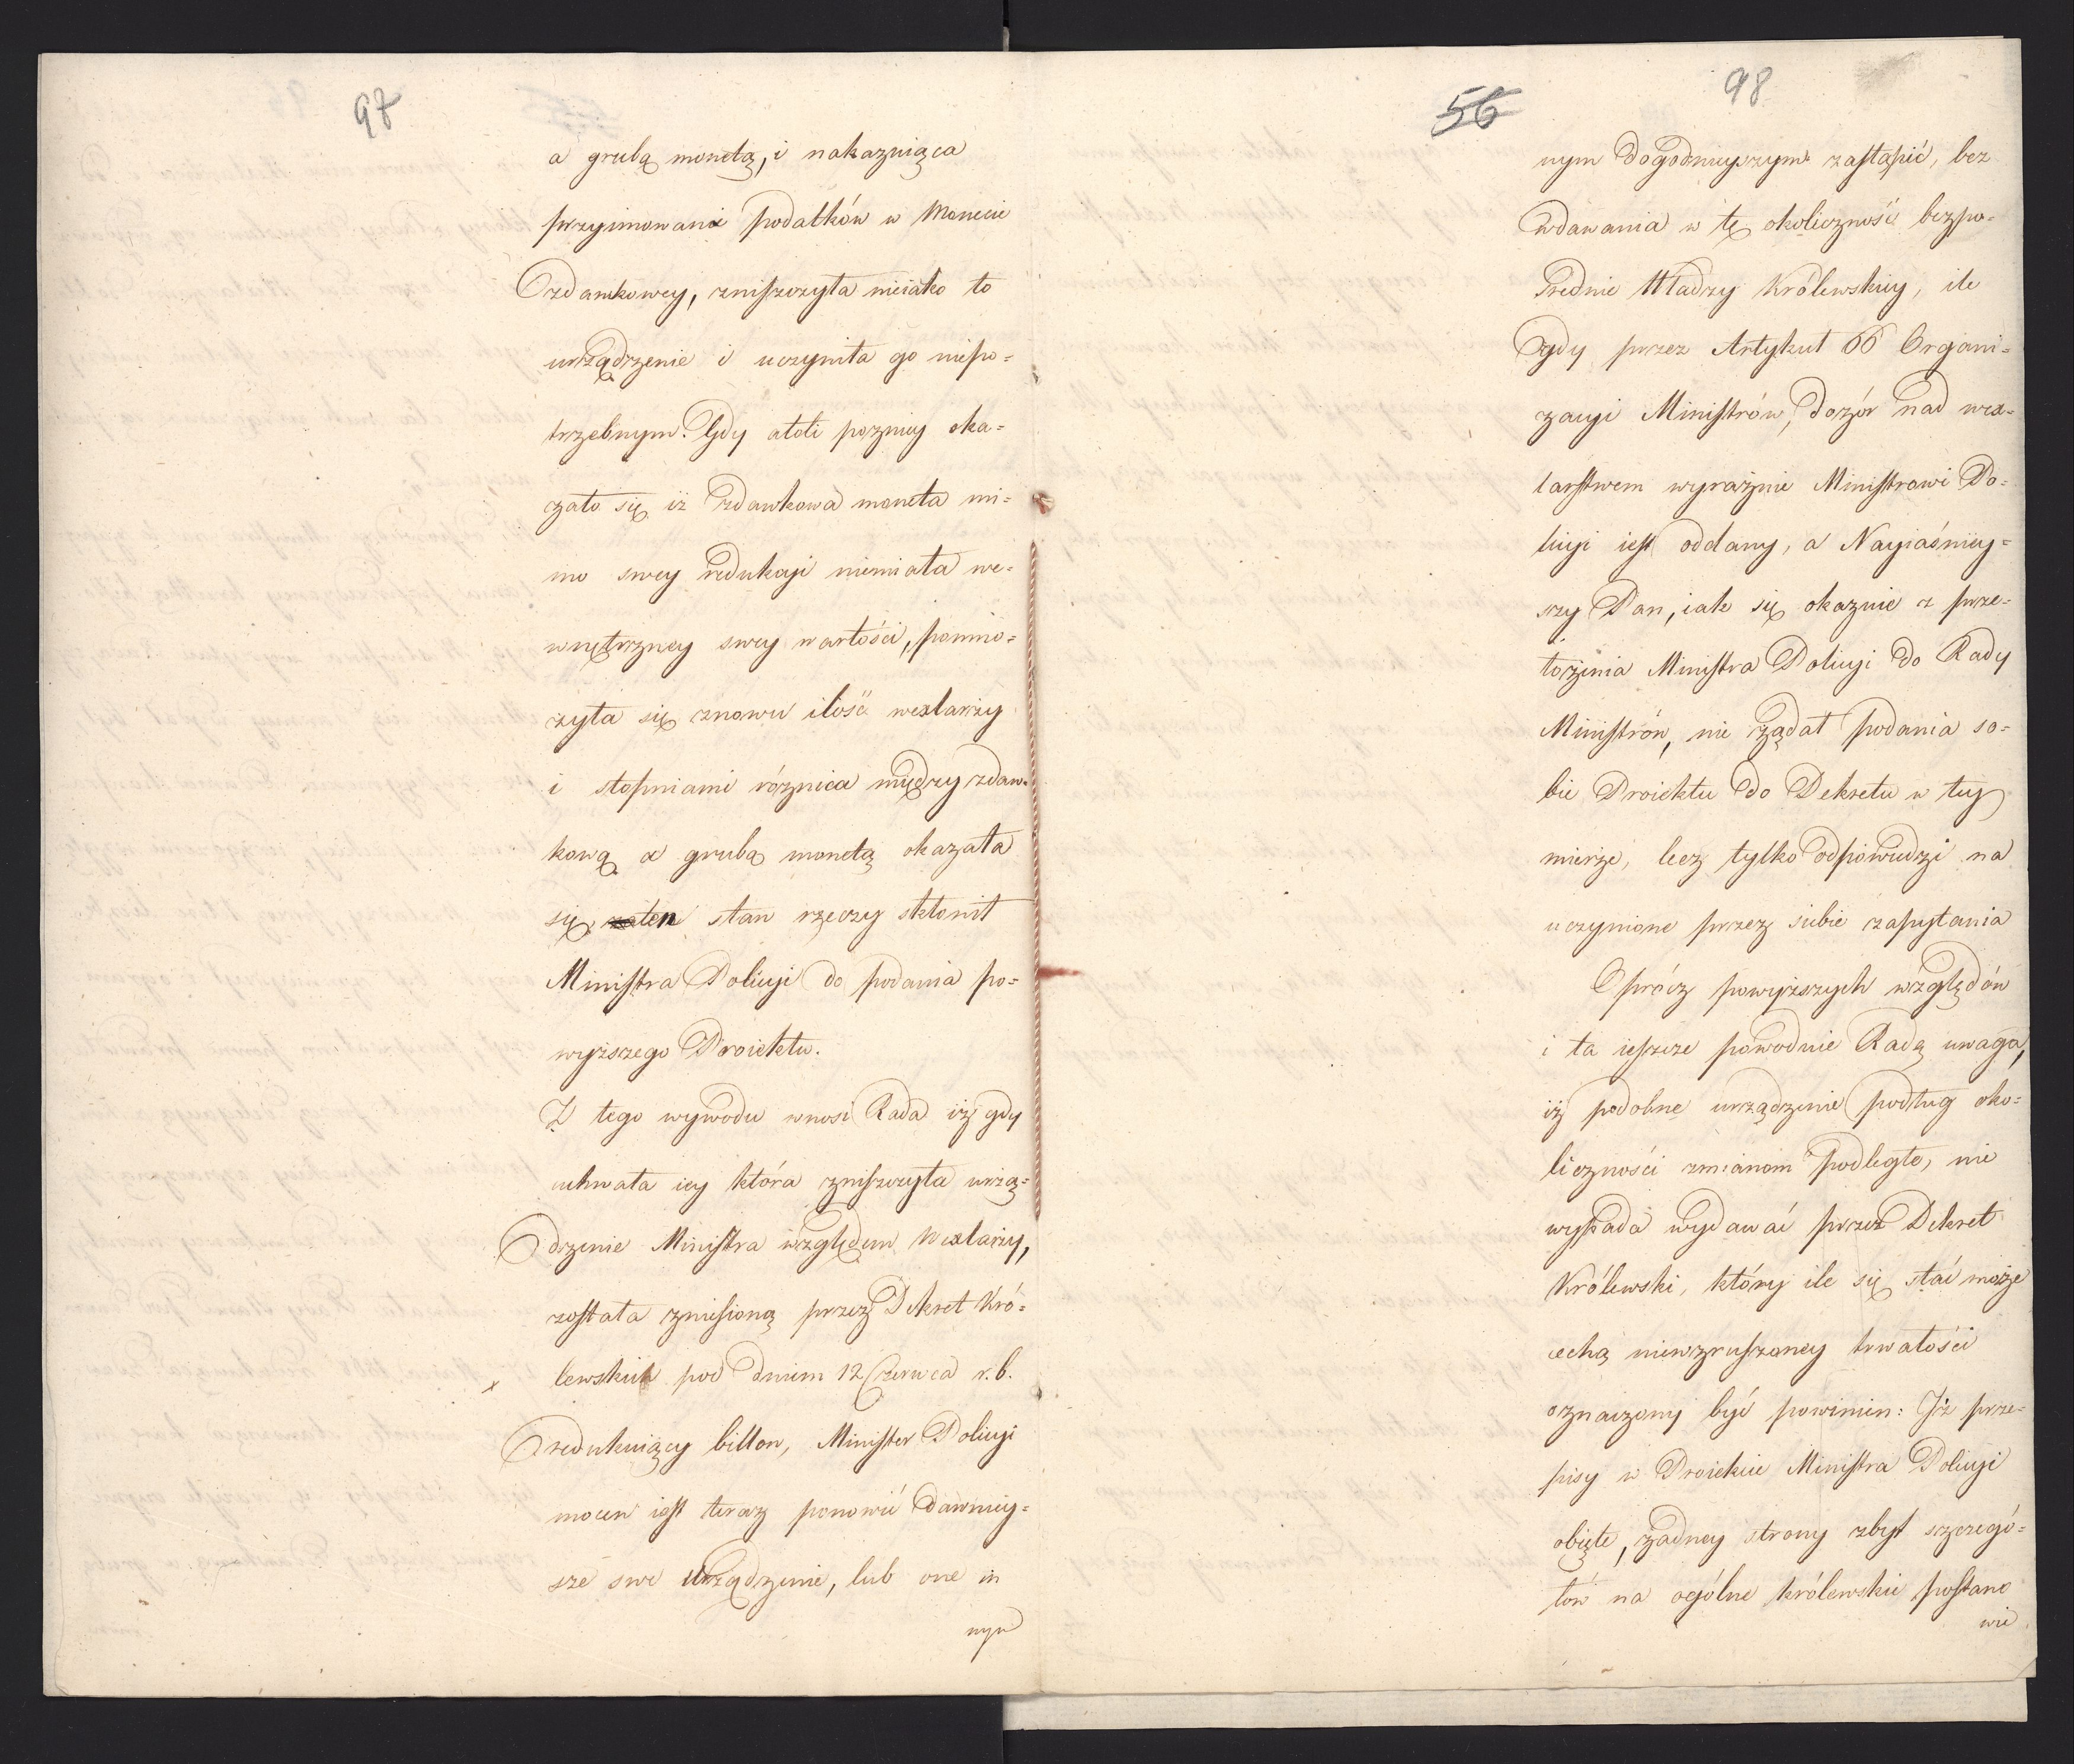 97
a grubą monetą, i nakazuiąca
przyimowanie podatków w Monecie
zdawkowey, zniszczyła nieiako to
urządzenie i uczyniła go niepo=
trzebnym. Gdy atoli pozniey oka=
zało się iż zdawkowa moneta mi=
mo swey redukcji niemiała we=
wnętrzney swey wartości, pomno=
żyła się znowu ilość wexlarzy
i stopniami różnica między zdaw=
kową a grubą monetą okazała
się, ten stan rzeczy skłonił
Ministra Policyi do podania po=
wyższego Proiektu.
Z tego wywodu wnosi Rada iż gdy
uchwała iey która zniszczyła urzą=
dzenie Ministra względem Wexlarzy,
została zniesioną przez Dekret Kró=
lewski pod dniem 12 Czerwca r. b.
redukuiący billon, Minister Policyi
mocen iest teraz ponowić dawniey=
sze swe Urządzenie, lub one in
nym
56 98
nym dogodnieyszym zastąpić, bez
wdawania w tę okoliczność bezpo=
srednie Władzy Królewskiey, ile
gdy przez Artykuł 66 Organi=
zacyi Ministrów, dozór nad wex=
larstwem wyraźnie Ministrowi Po=
licyi iest oddany, a Nayiaśniey=
szy Pan, iak się okazuie z prze=
łożenia Ministra Policyi do Rady
Ministrów, nie żądał podania so=
bie Proiektu do Dekretu w tey
mierze, lecz tylko odpowiedzi na
uczynione przez siebie zapytania
Oprócz powyższych względów
i ta ieszcze powoduie Radą uwaga,
iż podobne urządzenie podług oko=
liczności zmianom podległe, nie
wypada wydawać przez Dekret
Królewski, który ile się stać może
cechą niewzruszoney trwałości
oznaczony być powinien: Iż prze=
pisy w Proiekcie Ministra Policyi
obięte, żadney strony zbyt szczegó=
łów na ogólne królewskie postano
wie